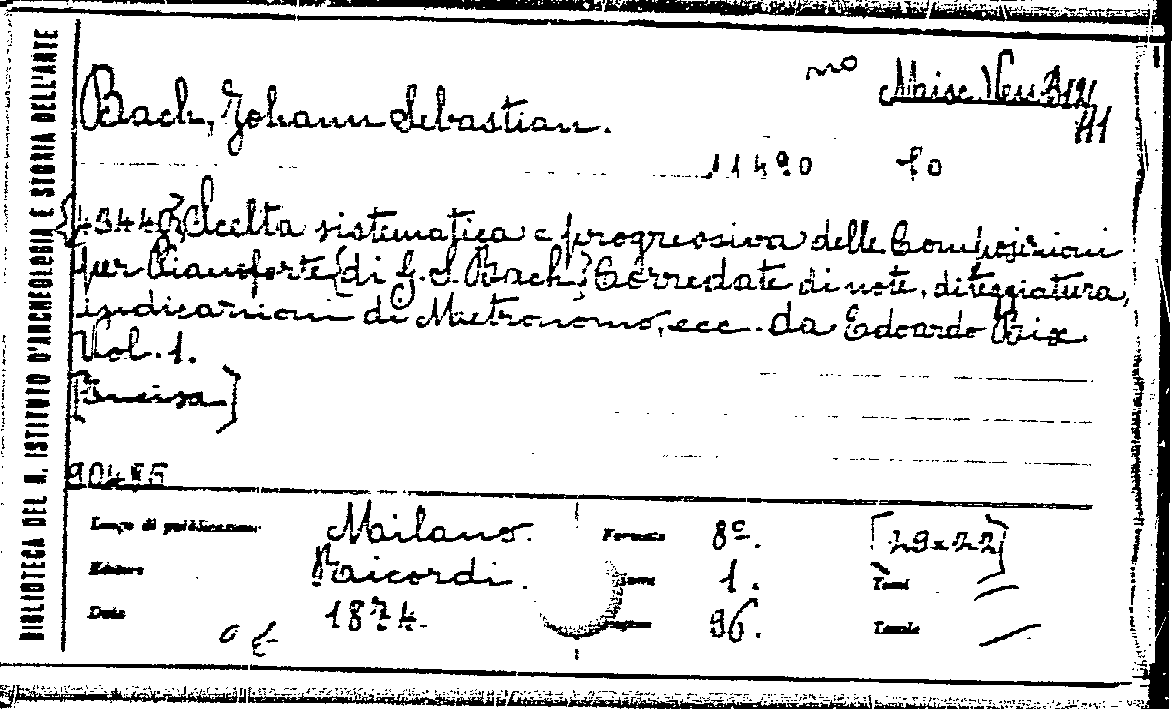 BIBLIOTECA DEL R. ISTITUTO D'ARCHEOLOGIA E STORIA DELL'ARTE
Bach, Johann Sebastian.
11490 fo
Scelta sistematica e progressiva delle Composizioni
per Pianoforte [di G. S. Bach] Corredate di note, diteggiatura,
indicazioni di Metronomo, ecc. da Edoardo Bix
Vol. 1.
Luogo di pubblicazione Milano. Formato 8º.
Editore Ricordi. 1. Tomi
Data 1874. Pagine 96. Tavole